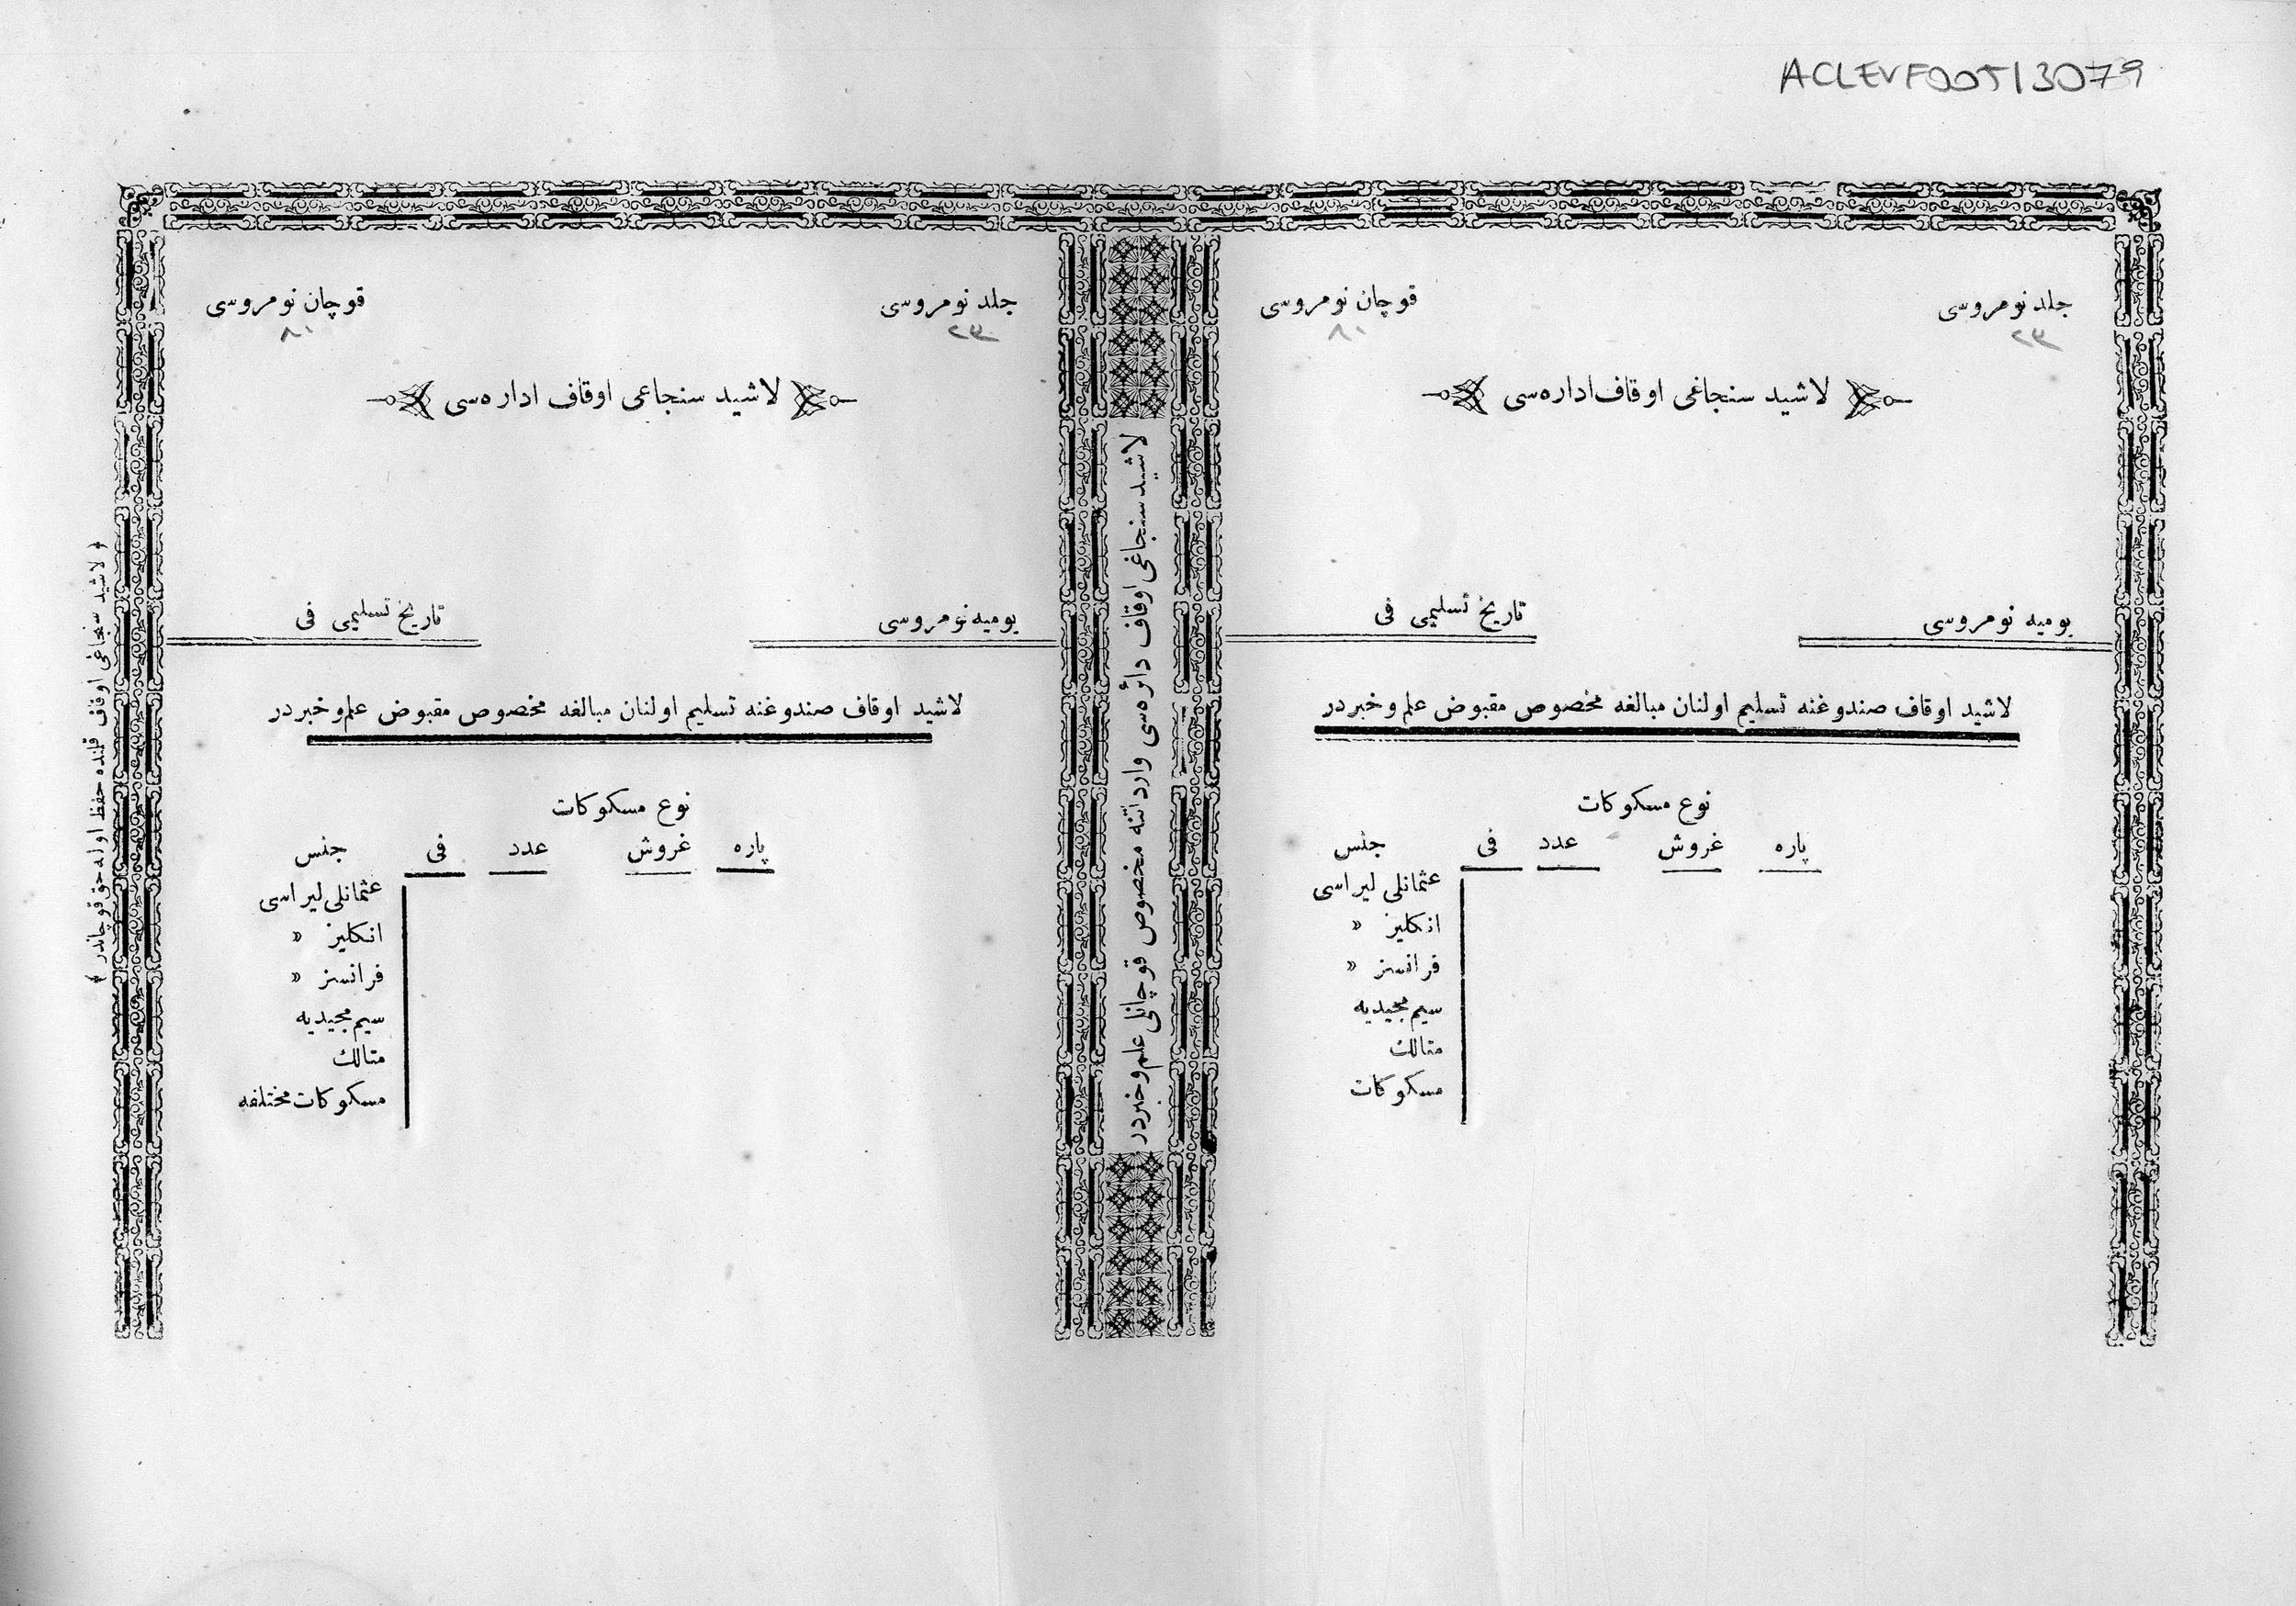 ACLEVF00513079
جلد نومروسی
٢٣
قوچان نومروسی
٨١
لاشيد سنجاغی اوقاف اداره‌سی
يوميه نومروسی
تاريخ تسليمی فی
لاشيد اوقاف صندوغنه تسليم اولنان مبالغه مخصوص مقبوض علم و خبردر
نوع مسكوكات
پاره غروش عدد فی جنس
عثمانلی ليراسی
انكليز »
فرانسز »
سيم مجيديه
متالك
مسكوكات
لاشيد سنجاغی اوقاف دائره‌سی وارداتنه مخصوص قوچانلی علم و خبردر
جلد نومروسی
٢٣
قوچان نومروسی
٨١
لاشيد سنجاغی اوقاف اداره‌سی
يوميه نومروسی
تاريخ تسليمی فی
لاشيد اوقاف صندوغنه تسليم اولنان مبالغه مخصوص مقبوض علم و خبردر
نوع مسكوكات
پاره غروش عدد فی جنس
عثمانلی ليراسی
انكليز »
فرانسز »
سيم مجيديه
متالك
مسكوكات مختلفه
﴿ لاشيد سنجاغی اوقاف قلمنده حفظ اوله‌جق قوچاندر ﴾